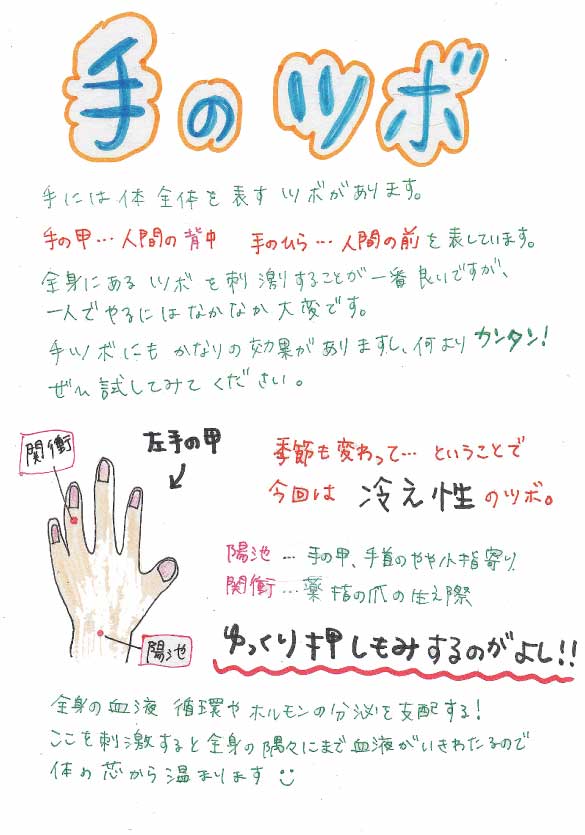 手のツボ
手には体全体を表すツボがあります。
手の甲…人間の背中 手のひら…人間の前を表しています。
全身にあるツボを刺激することが一番良いですが、
一人でやるにはなかなか大変です。
手ツボにもかなりの効果がありますし、何よりカンタン!
ぜひ試してみてください。
関衝
左手の甲
季節も変わって…ということで
今回は 冷え性のツボ。
陽池…手の甲、手首のやや小指寄り
関衝…薬指の爪の生え際
陽池
ゆっくり押しもみするのがよし!!
全身の血液循環やホルモンの分泌を支配する!
ここを刺激すると全身の隅々にまで血液がいきわたるので
体の芯から温まります